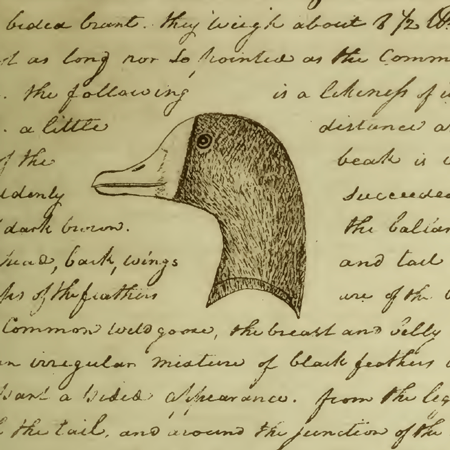 brant. they weigh about 8 1/2
as long nor so pointed as the Comm
. the following is a likeness of
. a little distance a
of the beak is
ddenly succeeded
dark brown. the balian
head, back, wings and tail
of the feathers are of the
Common wild goose, the breast and belly
an irregular mixture of black feathers
a pided appearance. from the leg
the tail, and around the junction of the